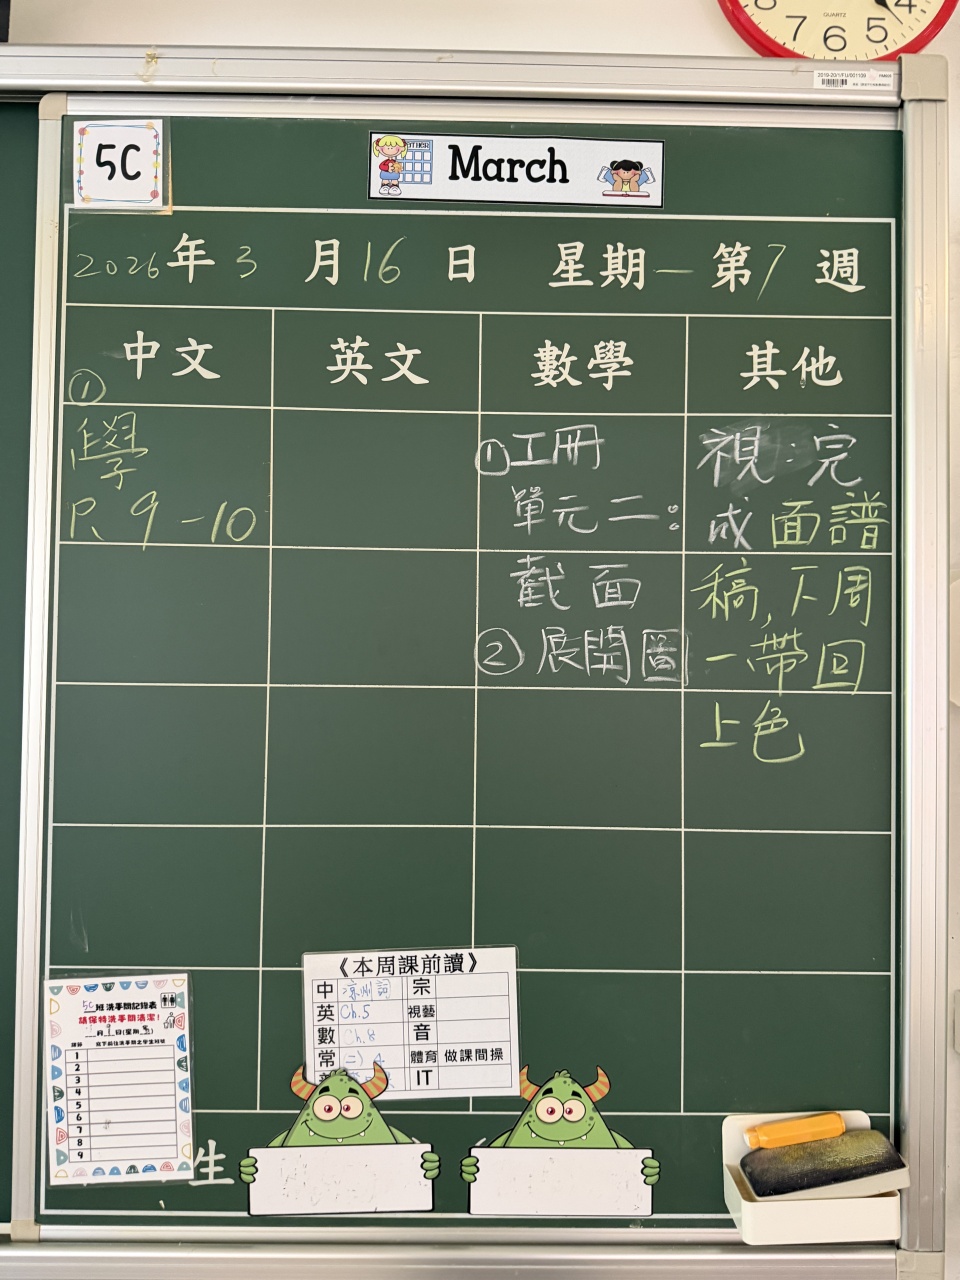 7 6 5 4
QUARTZ
5C
March
2026年3月16日 星期一 第7週
中文 英文 數學 其他
①
學
P. 9-10
①工冊
單元二:
截面
②展開圖
視:完
成面譜
稿,下周
一帶回
上色
《本周課前讀》
中 涼州詞 宗
英 Ch.5 視藝
數 Ch.8 音
常 (二) 4 體育 做課間操
IT
5C班洗手間記錄表
請保持洗手間清潔!
月 日(星期 )
1
2
3
4
5
6
7
8
9
生